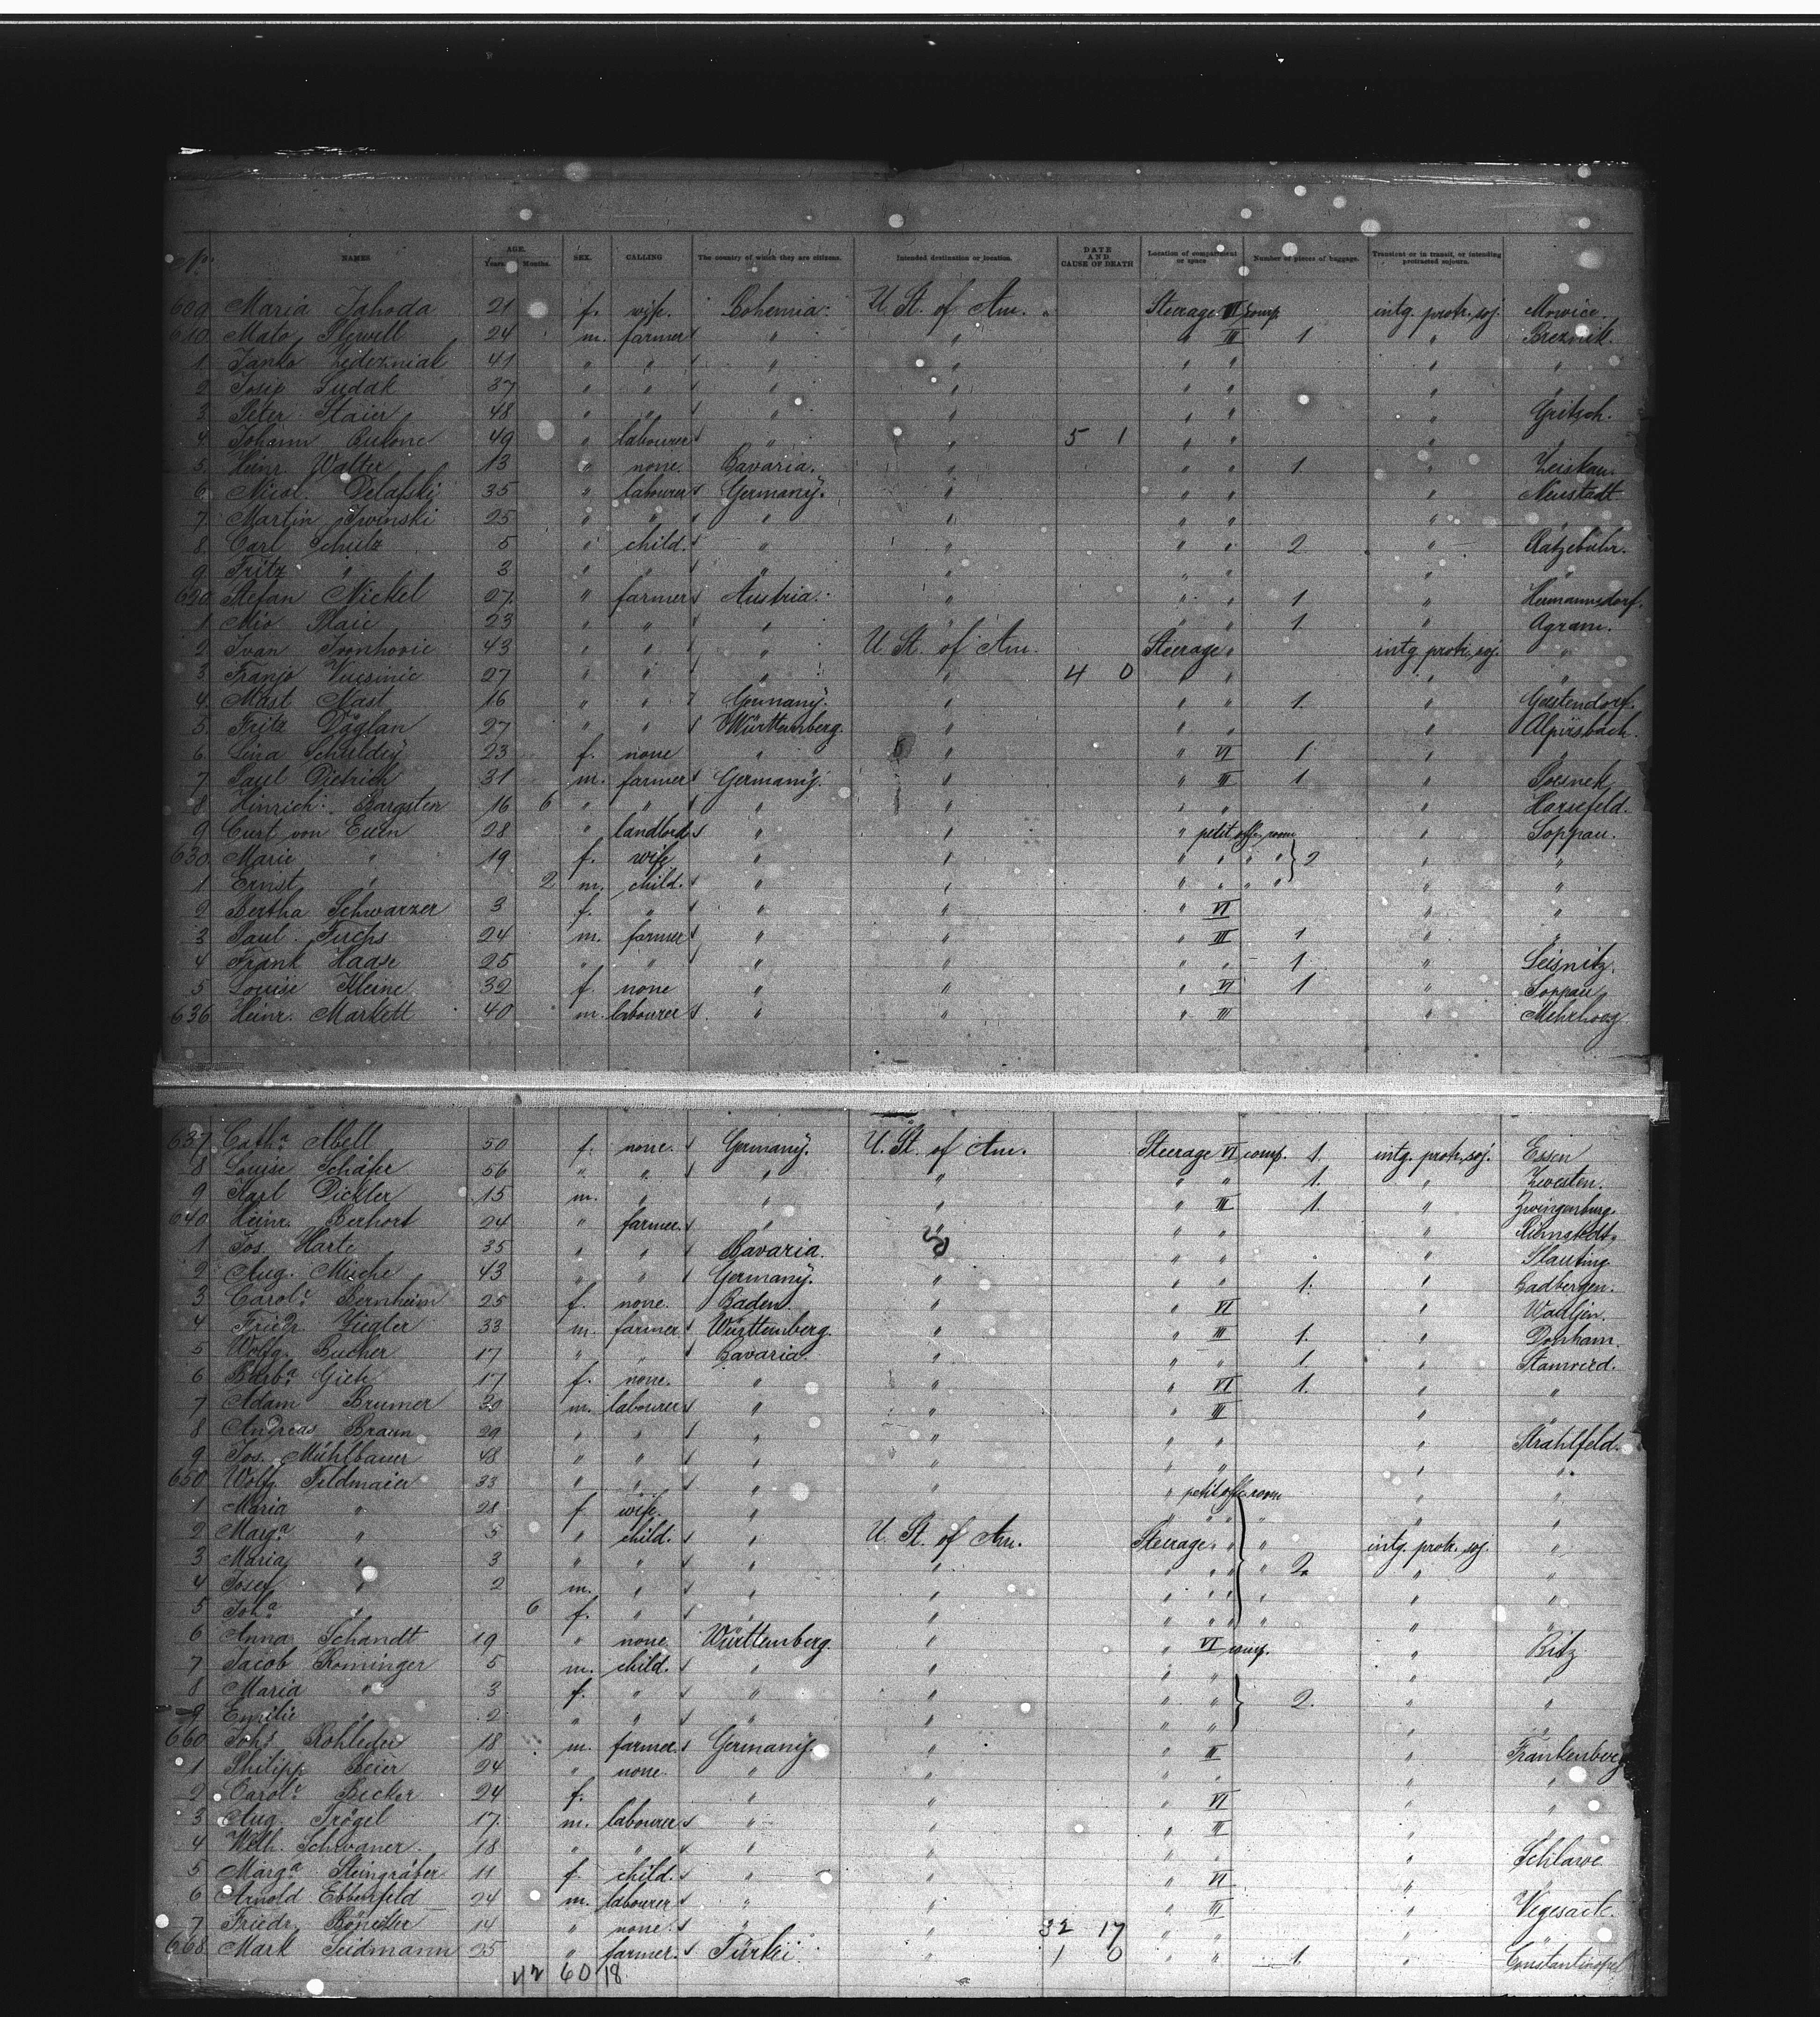 No. NAMES AGE. Years. Months. SEX. CALLING The country of which they are citizens. Intended destination or location. DATE AND CAUSE OF DEATH Location of compartment or space Number of pieces of baggage. Transient or in transit, or intending protracted sojourn.
609 Maria Jahoda 21 f. wife. Bohemia. U. St. of Am. Steerage III comp. intg. protr. soj. Mowice.
610 Mato 24 m. farmer " " " III 1 " Breznik.
1 Janko 41 " " " " " " " "
2 Josip Sudak 37 " " " " " " " "
3 Peter Staier 48 " " " " " " " Gritsch.
4 Johann 49 " labourer " " 5 1 " " " "
5 Heinr. Walter 13 " none. Bavaria. " " " 1. " Zeiskam.
6 Nicol. 35 " labourer Germany. " " " " Neustadt
7 Martin Iwinski 25 " " " " " " " "
8 Carl Schulz 5 " child. " " " " 2 " Ratzebuhr.
9 Fritz " 3 " " " " " " " "
620 Stefan Nickel 27 " farmer Austria. " " " 1 " Hermannsdorf.
1 Mio Plaic 23 " " " " " " 1. " Agram.
2 Ivan 43 " " " U. St. of Am. Steerage " intg. protr. soj. "
3 Franjo Vucsinic 27 " " " " 4 0 " " " "
4 Mast Nast 16 " " Germany. " " " 1. " Geestendorf.
5 Fritz Däglan 27 " " Württemberg. " " " " Alpirsbach.
6 Lina Schuldey 23 f. none " " " VI 1 " "
7 Paul Dietrich 31 m. farmer Germany. " " III 1. " Poesnek
8 Hinrich Bargsten 16 6 " " " " " " " Harsefeld.
9 Curt von Euen 28 " landlord " " " petit off. room " Soppau.
630 Marie " 19 f. wife " " " " " " 2 " "
1 Ernst " 2 m. child. " " " " " " " "
2 Bertha Schwarzer 3 f. " " " " VI " "
3 Paul Fuchs 24 m. farmer " " " III 1 " "
4 Frank Haase 25 " " " " " " 1 " Leisnitz.
5 Louise Kleine 32 f. none " " " VI 1 " Soppau
636 Heinr. Markett 40 m. labourer " " " III "
637 Cath.a Abell 50 f. none. Germany. U. St. of Am. Steerage VI comp. 1. intg. protr. soj. Essen
8 Louise Schäfer 56 " " " " " " 1. " Zwesten.
9 Karl Dickler 15 m. " " " " III 1. " Zwingenburg.
640 Heinr. Berhort 24 " farmer. " " " " "
1 Jos. Harte 35 " " Bavaria. " " " "
2 Aug. Mische 43 " " Germany. " " " 1. " Badbergen.
3 Carol.e Bernheim 25 f. none. Baden. " " VI "
4 Friedr. Ziegler 33 m. farmer Württemberg. " " III 1. "
5 Wolfg. Bucher 17 " " Bavaria. " " " 1. "
6 Barb.a 17 f. none. " " " VI 1. " "
7 Adam Brumer 20 m. labourer " " " III " "
8 Andreas Braun 29 " " " " " " " Strahlfeld.
9 Jos. Mühlbauer 48 " " " " " " " "
650 Wolfg. Feldmaier 33 " " " " " petit off. room " "
1 Maria " 28 f. wife. " " " " " " " "
2 Marg.a " 5 " child. " U. St. of Am. Steerage " " " intg. protr. soj. "
3 Maria " 3 " " " " " " " " 2. " "
4 Josef " 2 m. " " " " " " " "
5 Joh.a " 6 f. " " " " " " " " "
6 Anna Schandt 19 " none Württemberg. " " VI comp. " Ritz
7 Jacob Kominger 5 m. child. " " " " " "
8 Maria " 3 f. " " " " " 2. " "
9 Emilie " 2 " " " " " " " "
660 Joh.s Rohleder 18 m. farmer. Germany. " " III " Frankenberg
1 Philipp Beier 24 " none " " " " " "
2 Carol.e Becker 24 f. " " " VI " "
3 Aug. Trögel 17. m. labourer " " " III " "
4 Wilh. Schwaner 18 " " " " " " " Schlawe
5 Marg.a Steingräber 11 f. child. " " " VI " "
6 Arnold Ebbenfeld 24 m. labourer " " " III " Vegesack.
7 Friedr. 14 " none. " " 32 17 " " " "
668 Mark Seidmann 25 " farmer. Türkei. " 1 0 " " 1 " Constantinopel
42 60 18